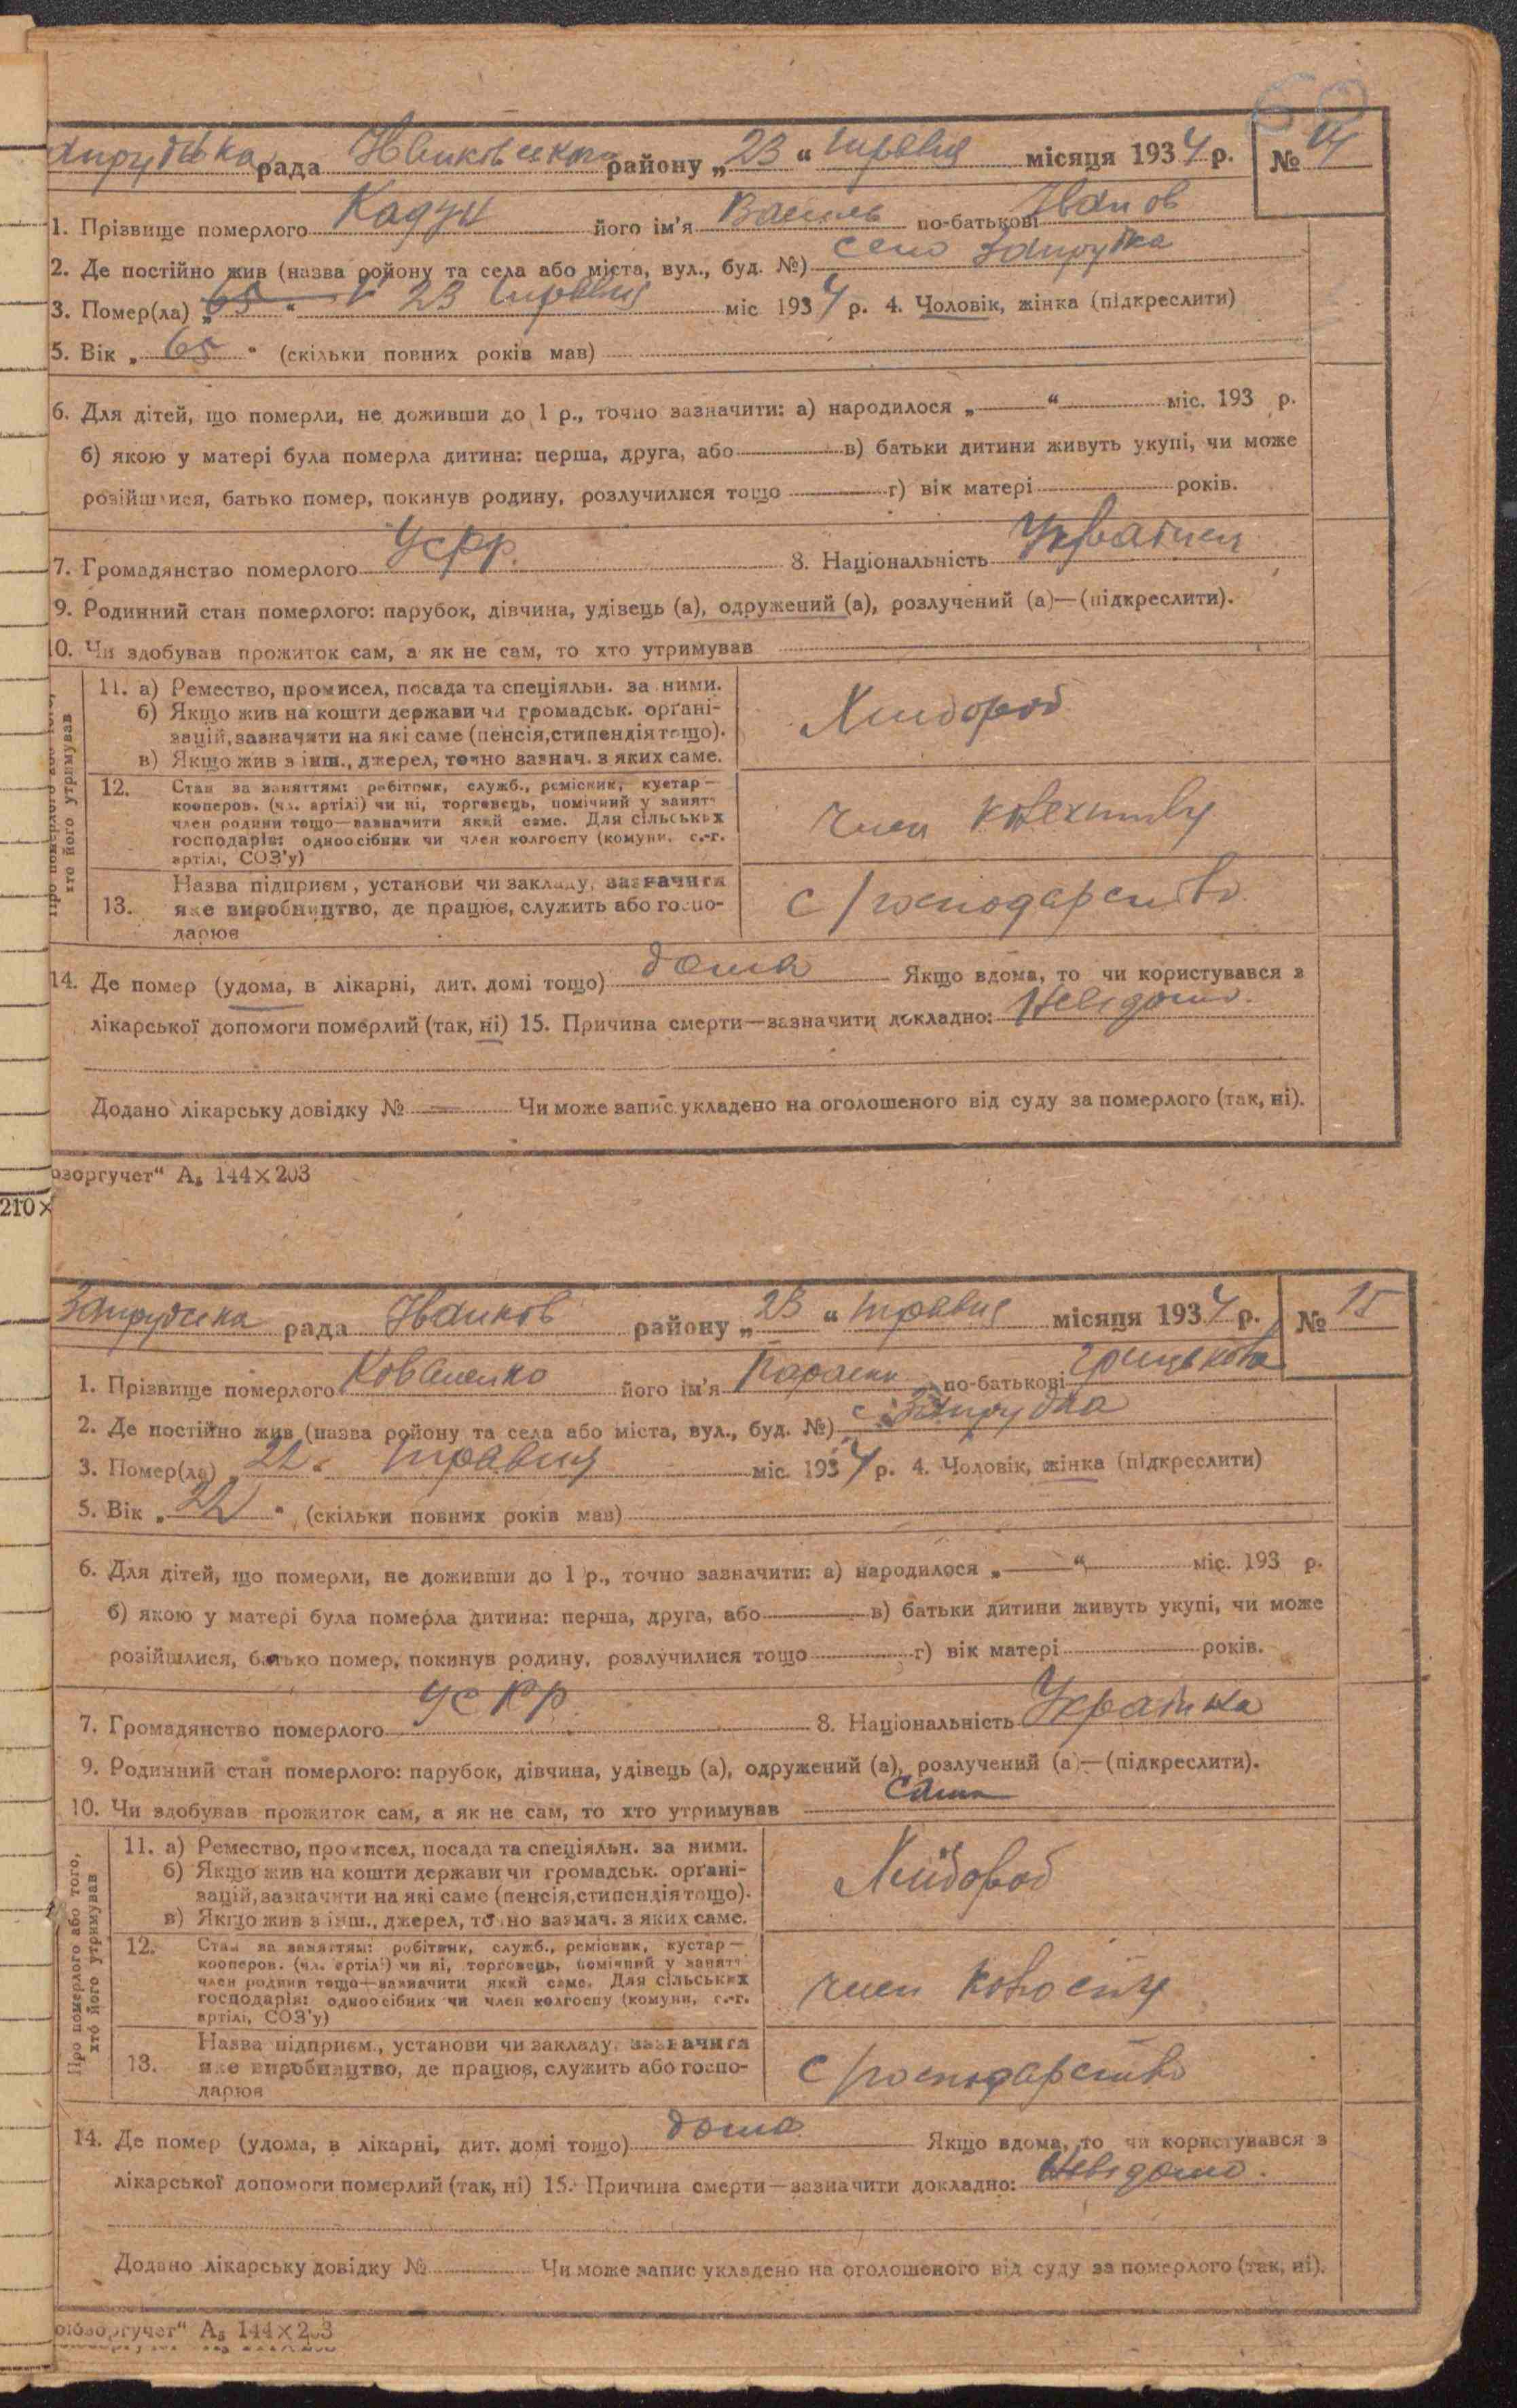 рада Іванковського району „23“ травня місяця 1934 р. № 14
1. Прізвище померлого Кадун його ім'я Василь по-батькові Іванов
2. Де постійно жив (назва ройону та села або міста, вул., буд. №) село Запрудка
3. Помер(ла) „ “ 23 травня міс 1934 р. 4. Чоловік, жінка (підкреслити)
5. Вік „ 65 “ (скільки повних років мав)
6. Для дітей, що померли, не доживши до 1 р., точно зазначити: а) народилося „—“ міс. 193 р.
б) якою у матері була померла дитина: перша, друга, або — в) батьки дитини живуть укупі, чи може
розійшлися, батько помер, покинув родину, розлучилися тощо — г) вік матері років.
7. Громадянство померлого УСРР. 8. Національність Українец
9. Родинний стан померлого: парубок, дівчина, удівець (а), одружений (а), розлучений (а)—(підкреслити).
10. Чи здобував прожиток сам, а як не сам, то хто утримував
кто його утримував
11. а) Ремество, промисел, посада та спеціяльн. за ними.
б) Якщо жив на кошти держави чи громадськ. орґані-
зацій, зазначити на які саме (пенсія, стипендія тощо).
в) Якщо жив з інш., джерел, точно зазнач. з яких саме.
Хлібороб
12. Стан за заняттям: робітник, служб., ремісник, кустар—
кооперов. (чл. артілі) чи ні, торговець, помічний у занятт
член родини тощо—зазначити який саме. Для сільських
господарів: одноосібник чи член колгоспу (комуни, с.-г.
артілі, СОЗ'у)
член
13. Назва підприєм, установи чи закладу, зазначити
яке виробництво, де працює, служить або госпо-
дарює
с/господарство
14. Де помер (удома, в лікарні, дит. домі тощо) дома Якщо вдома, то чи користувався з
лікарської допомоги померлий (так, ні) 15. Причина смерти—зазначити докладно: Невідомо.
Додано лікарську довідку № — Чи може запис укладено на оголошеного від суду за померлого (так, ні).
озоргучет“ А₅ 144×203
210×
Запрудська рада Іванков району „23“ травня місяця 1934 р. № 15
1. Прізвище померлого Коваленко його ім'я по-батькові Грицькова
2. Де постійно жив (назва ройону та села або міста, вул., буд. №) с. Запрудка
3. Помер(ла) „22“ травня міс. 1934 р. 4. Чоловік, жінка (підкреслити)
5. Вік „ 22 “ (скільки повних років мав)
6. Для дітей, що померли, не доживши до 1 р., точно зазначити: а) народилося „—“ міс. 193 р.
б) якою у матері була померла дитина: перша, друга, або — в) батьки дитини живуть укупі, чи може
розійшлися, батько помер, покинув родину, розлучилися тощо — г) вік матері років.
7. Громадянство померлого УСРР. 8. Національність Українка
9. Родинний стан померлого: парубок, дівчина, удівець (а), одружений (а), розлучений (а)—(підкреслити).
10. Чи здобував прожиток сам, а як не сам, то хто утримував сама
Про померлого або того,
хто його утримував
11. а) Ремество, промисел, посада та спеціяльн. за ними.
б) Якщо жив на кошти держави чи громадськ. орґані-
зацій, зазначити на які саме (пенсія, стипендія тощо).
в) Якщо жив з інш., джерел, точно зазнач. з яких саме.
Хлібороб
12. Стан за заняттям: робітник, служб., ремісник, кустар—
кооперов. (чл. артілі) чи ні, торговець, помічний у занятт
член родини тощо—зазначити який саме. Для сільських
господарів: одноосібник чи член колгоспу (комуни, с.-г.
артілі, СОЗ'у)
член
13. Назва підприєм., установи чи закладу, зазначити
яке виробництво, де працює, служить або госпо-
дарює
с/господарство
14. Де помер (удома, в лікарні, дит. домі тощо) дома Якщо вдома, то чи користувався з
лікарської допомоги померлий (так, ні) 15. Причина смерти—зазначити докладно: Невідомо.
Додано лікарську довідку № Чи може запис укладено на оголошеного від суду за померлого (так, ні).
оюзоргучет“ А₅ 144×203